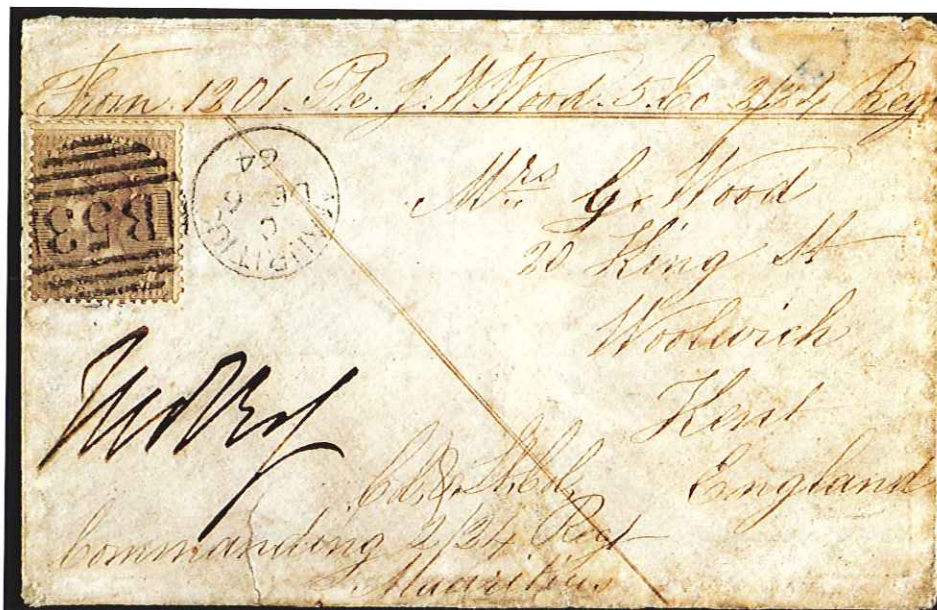 From 1201. Pte. J. W. Wood. 5. Co 2/24 Reg
B53
MAURITIUS
C
DE 6
64
Mrs G. Wood
20 King St
Woolwich
Kent
England
Col. & Lt. Col.
Commanding 2/24 Regt
Mauritius